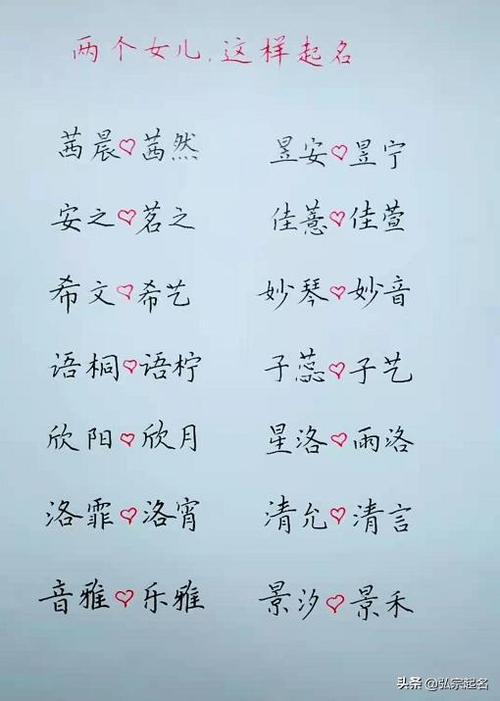 两个女儿,这样起名
茜晨♡茜然 昱安♡昱宁
安之♡茗之 佳薏♡佳萱
希文♡希艺 妙琴♡妙音
语桐♡语柠 子蕊♡子艺
欣阳♡欣月 星洛♡雨洛
洛霏♡洛宵 清允♡清言
音雅♡乐雅 景汐♡景禾
头条 @弘宗起名